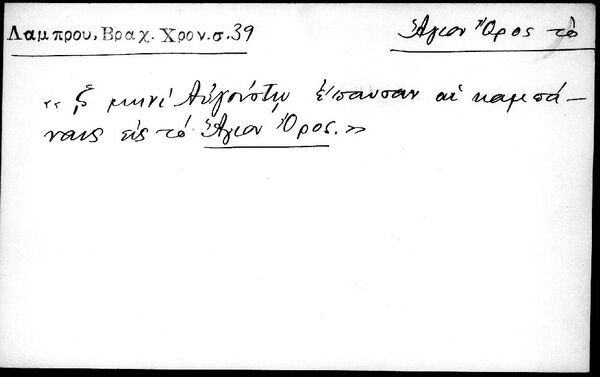 Λαμπρου, Βραχ. Χρον. σ. 39
Ἅγιον Ὄρος τὸ
μηνὶ Αὐγούστῳ ἔπαυσαν αἱ καμπά–
ναις εἰς τὸ Ἅγιον Ὄρος.»